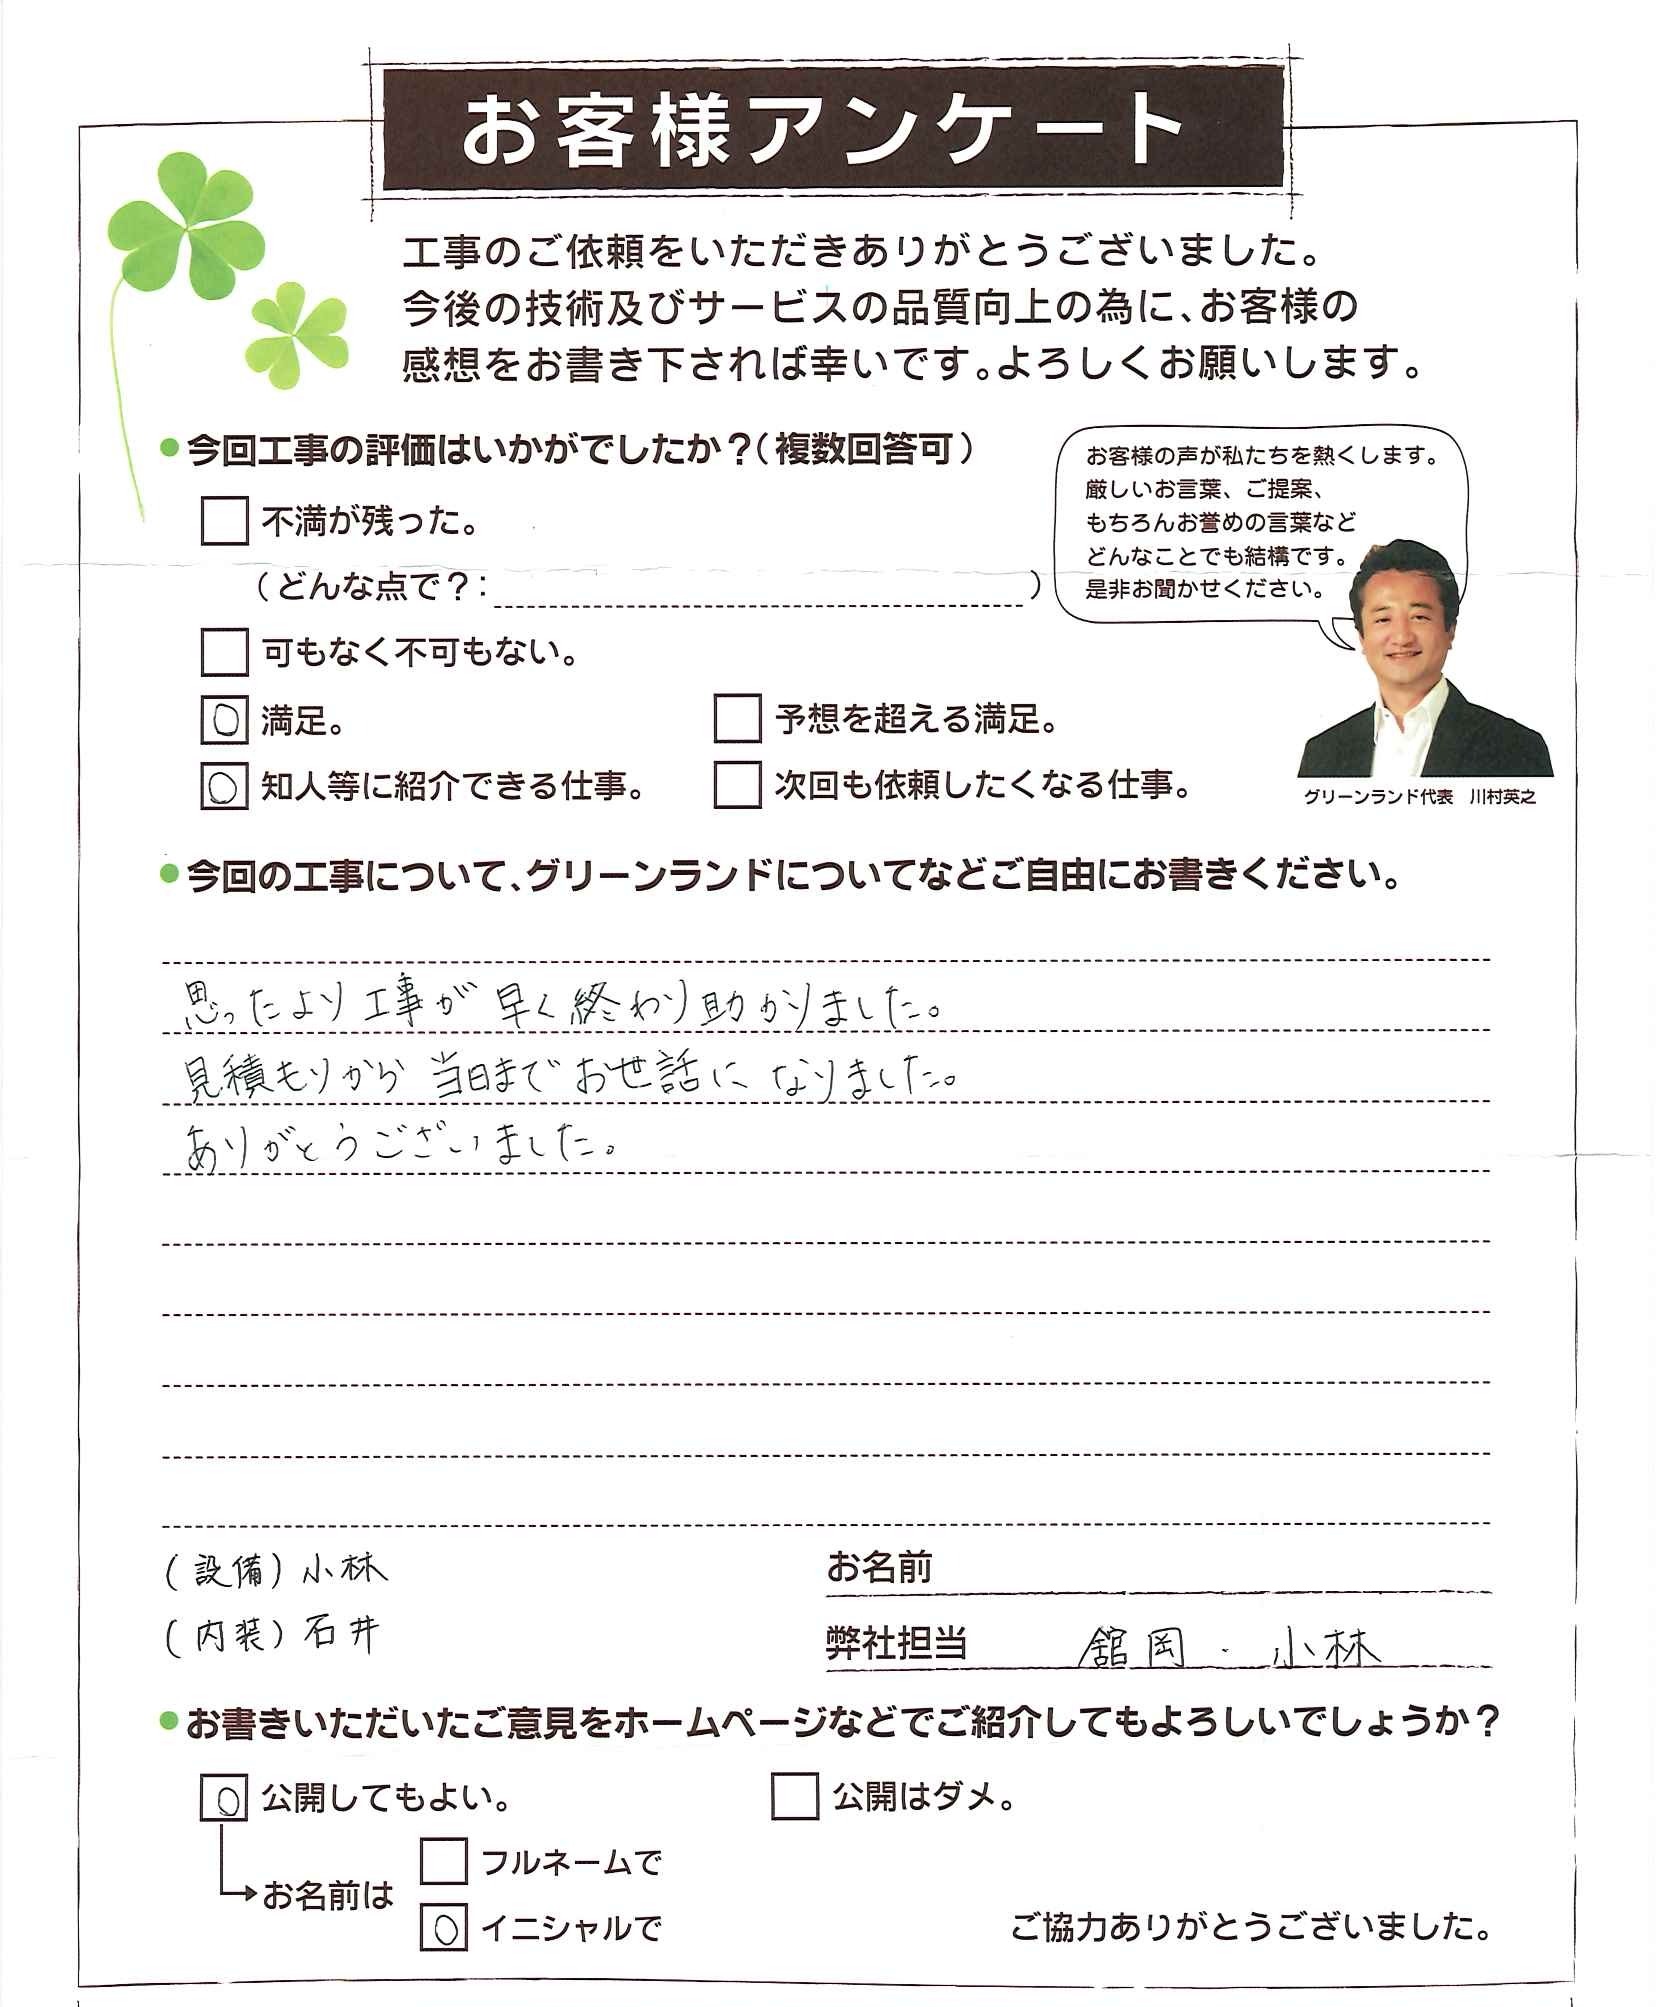 お客様アンケート
工事のご依頼をいただきありがとうございました。
今後の技術及びサービスの品質向上の為に、お客様の
感想をお書き下されば幸いです。よろしくお願いします。
●今回工事の評価はいかがでしたか？（複数回答可）
お客様の声が私たちを熱くします。
厳しいお言葉、ご提案、
もちろんお誉めの言葉など
どんなことでも結構です。
是非お聞かせください。
グリーンランド代表　川村英之
□ 不満が残った。
（どんな点で？：　　　）
□ 可もなく不可もない。
○ 満足。　□ 予想を超える満足。
○ 知人等に紹介できる仕事。　□ 次回も依頼したくなる仕事。
●今回の工事について、グリーンランドについてなどご自由にお書きください。
思ったより工事が早く終わり助かりました。
見積もりから当日までお世話になりました。
ありがとうございました。
（設備）小林　お名前
（内装）石井　弊社担当　舘岡・小林
●お書きいただいたご意見をホームページなどでご紹介してもよろしいでしょうか？
○ 公開してもよい。　□ 公開はダメ。
□ フルネームで
→お名前は
○ イニシャルで　ご協力ありがとうございました。